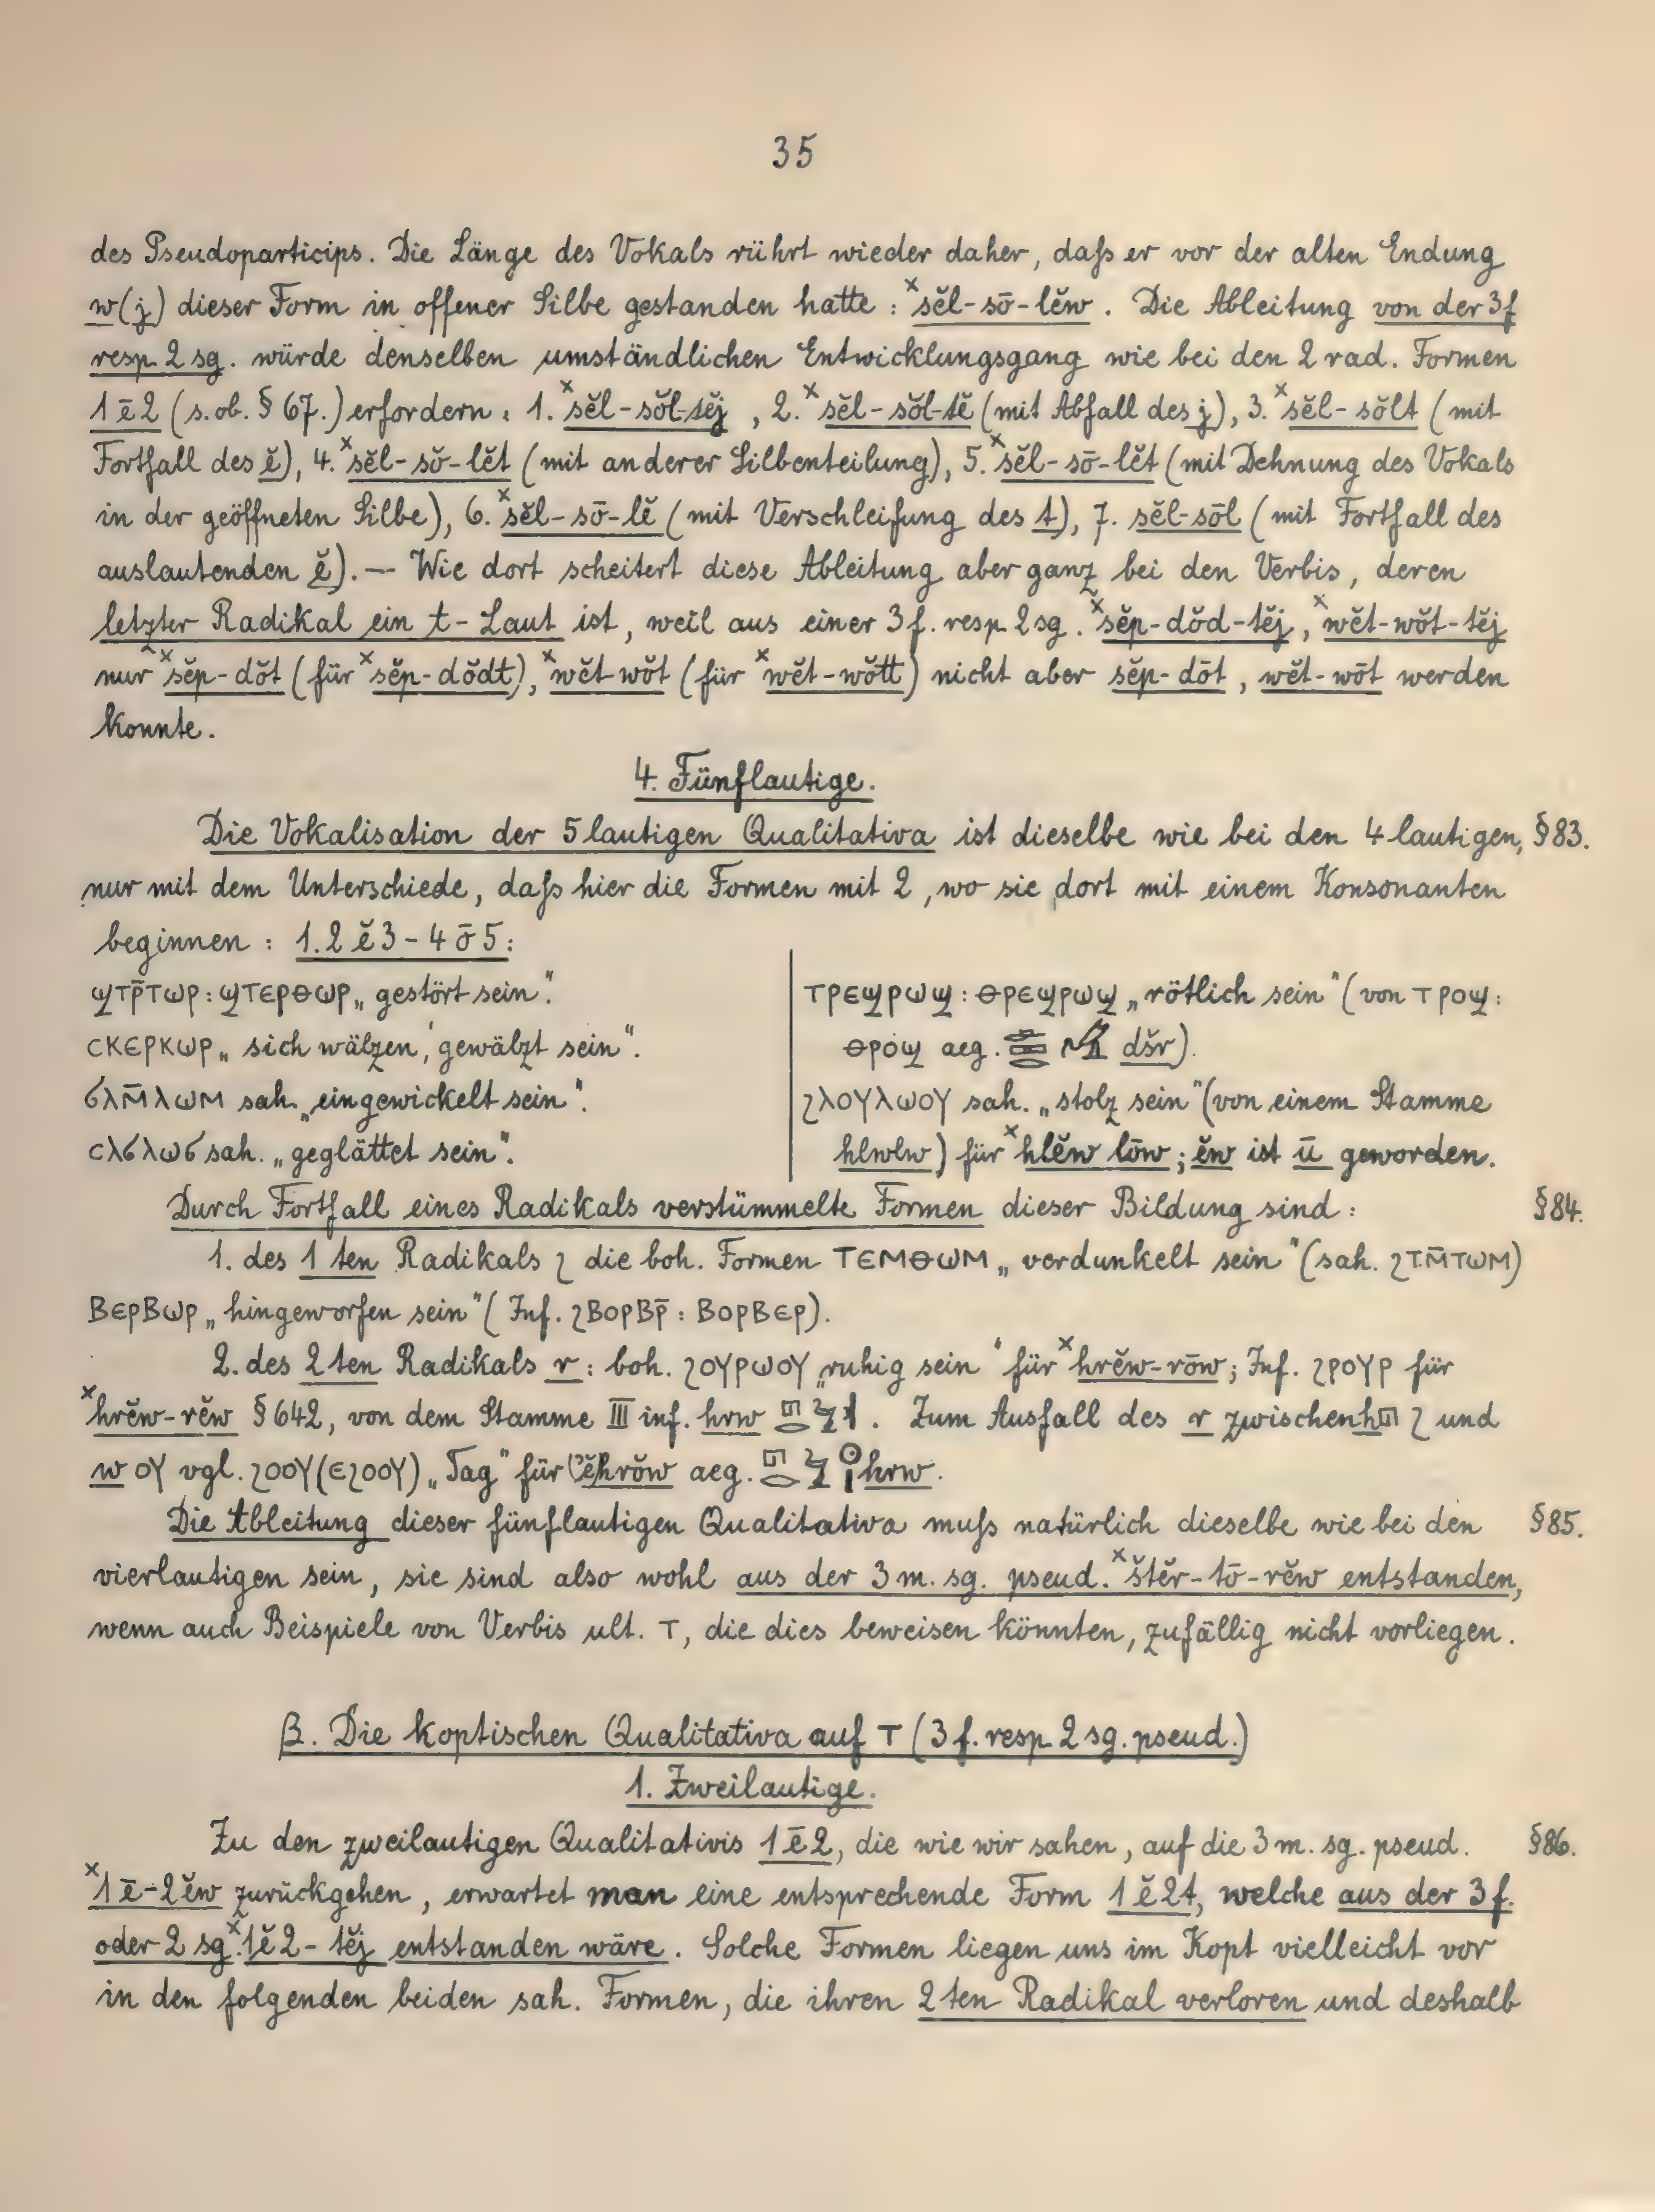 35
des Pseudoparticips. Die Länge des Vokals rührt wieder daher, daſs er vor der alten Endung
w(j) dieser Form in offener Silbe gestanden hatte : ˣsĕl-sō-lĕw. Die Ableitung von der 3 f
resp. 2 sg. würde denselben umständlichen Entwicklungsgang wie bei den 2 rad. Formen
1 ē 2 (s. ob. § 67.) erfordern : 1. ˣsĕl-sŏl-tĕj, 2. ˣsĕl-sŏl-tĕ (mit Abfall des j), 3. ˣsĕl-sŏlt (mit
Fortfall des ĕ), 4. ˣsĕl-sŏ-lĕt (mit anderer Silbenteilung), 5. ˣsĕl-sō-lĕt (mit Dehnung des Vokals
in der geöffneten Silbe), 6. ˣsĕl-sō-lĕ (mit Verschleifung des t), 7. sĕl-sōl (mit Fortfall des
auslautenden ĕ). — Wie dort scheitert diese Ableitung aber ganz bei den Verbis, deren
letzter Radikal ein t-Laut ist, weil aus einer 3 f. resp. 2 sg. ˣsĕp-dŏd-tĕj, ˣwĕt-wŏt-tĕj
nur ˣsĕp-dŏt (für ˣsĕp-dŏdt), ˣwĕt-wŏt (für ˣwĕt-wŏtt) nicht aber sĕp-dōt, wĕt-wōt werden
konnte.
4. Fünflautige.
Die Vokalisation der 5 lautigen Qualitativa ist dieselbe wie bei den 4 lautigen, § 83.
nur mit dem Unterschiede, daſs hier die Formen mit 2, wo sie dort mit einem Konsonanten
beginnen : 1. 2 ĕ 3 - 4 ō 5:
ϣⲧⲣ̄ⲧⲱⲣ : ϣⲧⲉⲣⲑⲱⲣ „gestört sein".
ⲥⲕⲉⲣⲕⲱⲣ „sich wälzen, gewälzt sein".
ϭⲗⲙ̄ⲗⲱⲙ sah. „eingewickelt sein".
ⲥⲗϭⲗⲱϭ sah. „geglättet sein".
ⲧⲣⲉϣⲣⲱϣ : ⲑⲣⲉϣⲣⲱϣ „rötlich sein" (von ⲧⲣⲟϣ :
ⲑⲣⲟϣ aeg. dšr).
ϩⲗⲟⲩⲗⲱⲟⲩ sah. „stolz sein" (von einem Stamme
hlwlw) für ˣhlĕw lōw; ĕw ist ū geworden.
Durch Fortfall eines Radikals verstümmelte Formen dieser Bildung sind : § 84.
1. des 1 ten Radikals ϩ die boh. Formen ⲧⲉⲙⲑⲱⲙ „verdunkelt sein" (sah. ϩⲧⲙ̄ⲧⲱⲙ)
ⲃⲉⲣⲃⲱⲣ „hingeworfen sein" (Inf. ϩⲃⲟⲣⲃⲣ̄ : ⲃⲟⲣⲃⲉⲣ).
2. des 2 ten Radikals r : boh. ϩⲟⲩⲣⲱⲟⲩ „ruhig sein" für ˣhrĕw-rōw; Inf. ϩⲣⲟⲩⲣ für
ˣhrĕw-rĕw § 642, von dem Stamme III inf. hrw. Zum Ausfall des r zwischen h ϩ und
w ⲟⲩ vgl. ϩⲟⲟⲩ (ⲉϩⲟⲟⲩ) „Tag" für (ʾĕ)hrŏw aeg. hrw.
Die Ableitung dieser fünflautigen Qualitativa muſs natürlich dieselbe wie bei den § 85.
vierlautigen sein, sie sind also wohl aus der 3 m. sg. pseud. ˣštĕr-tō-rĕw entstanden,
wenn auch Beispiele von Verbis ult. ⲧ, die dies beweisen könnten, zufällig nicht vorliegen.
B. Die koptischen Qualitativa auf ⲧ (3 f. resp. 2 sg. pseud.)
1. Zweilautige.
Zu den zweilautigen Qualitativis 1 ē 2, die wie wir sahen, auf die 3 m. sg. pseud. § 86.
ˣ1 ē-2 ĕw zurückgehen, erwartet man eine entsprechende Form 1 ĕ 2t, welche aus der 3 f.
oder 2 sg. ˣ1 ĕ 2-tĕj entstanden wäre. Solche Formen liegen uns im Kopt vielleicht vor
in den folgenden beiden sah. Formen, die ihren 2 ten Radikal verloren und deshalb